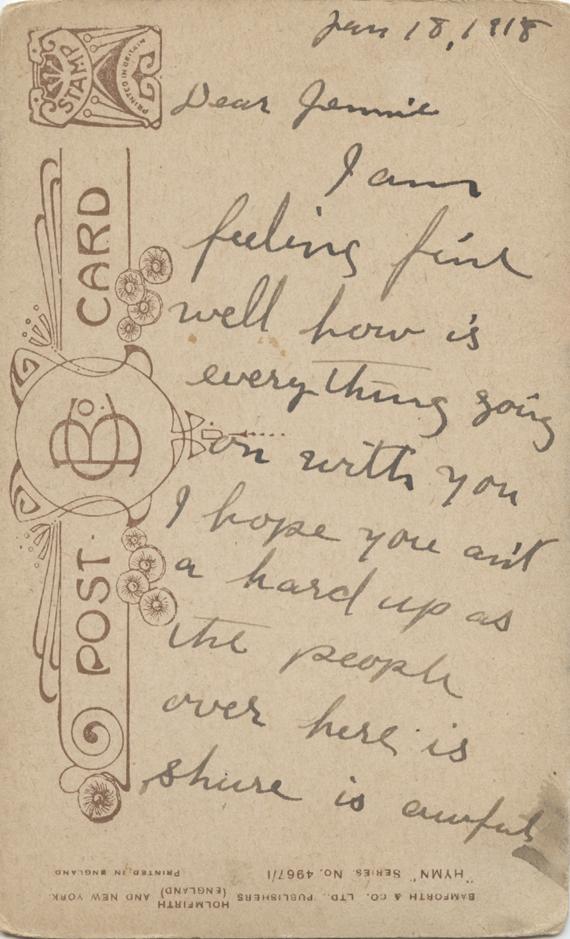 Jan 18, 1918
Dear Jennie
I am
feeling fine
well how is
everything going
on with you
I hope you ain't
a hard up as
the people
over here is
shure is awful
STAMP
PRINTED IN BRITAIN
POST CARD
B & Co.
BAMFORTH & CO. LTD. PUBLISHERS HOLMFIRTH (ENGLAND) AND NEW YORK
"HYMN" SERIES. No. 4967/1
PRINTED IN ENGLAND